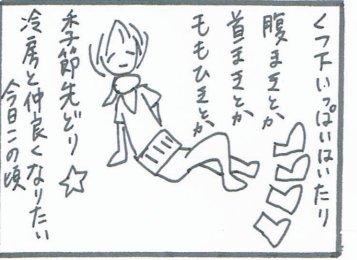 くつ下いっぱいはいたり
腹まきとか
首まきとか
ももひきとか
季節先どり☆
冷房と仲良くなりたい
今日この頃